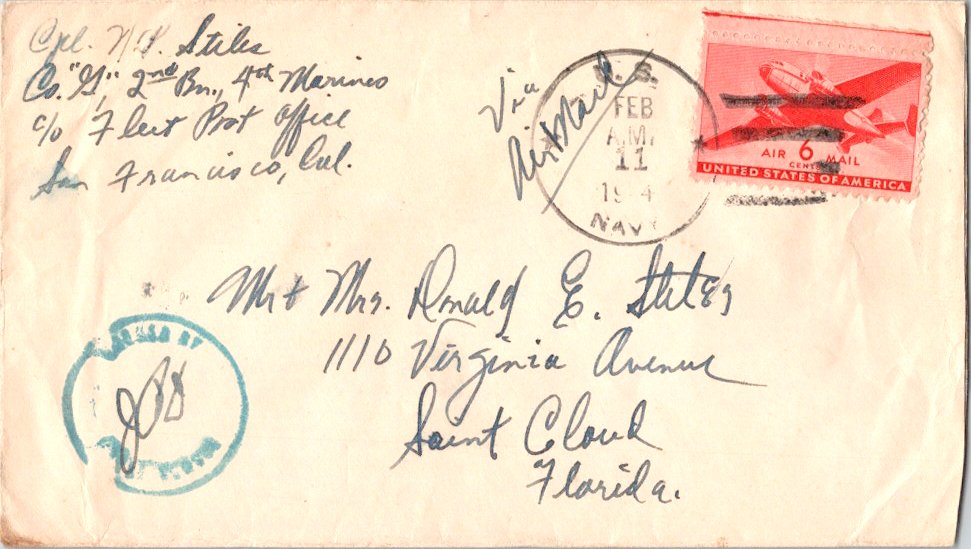 Cpl. N.D. Stiles
Co. "G", 2nd Bn., 4th Marines
c/o Fleet Post Office
San Francisco, Cal.
Via
Air Mail
U.S.
FEB
A.M.
11
NAVY
AIR 6 MAIL
CENTS
UNITED STATES OF AMERICA
Mr + Mrs. Donald E. Stiles
1110 Virginia Avenue
Saint Cloud
Florida.
BY